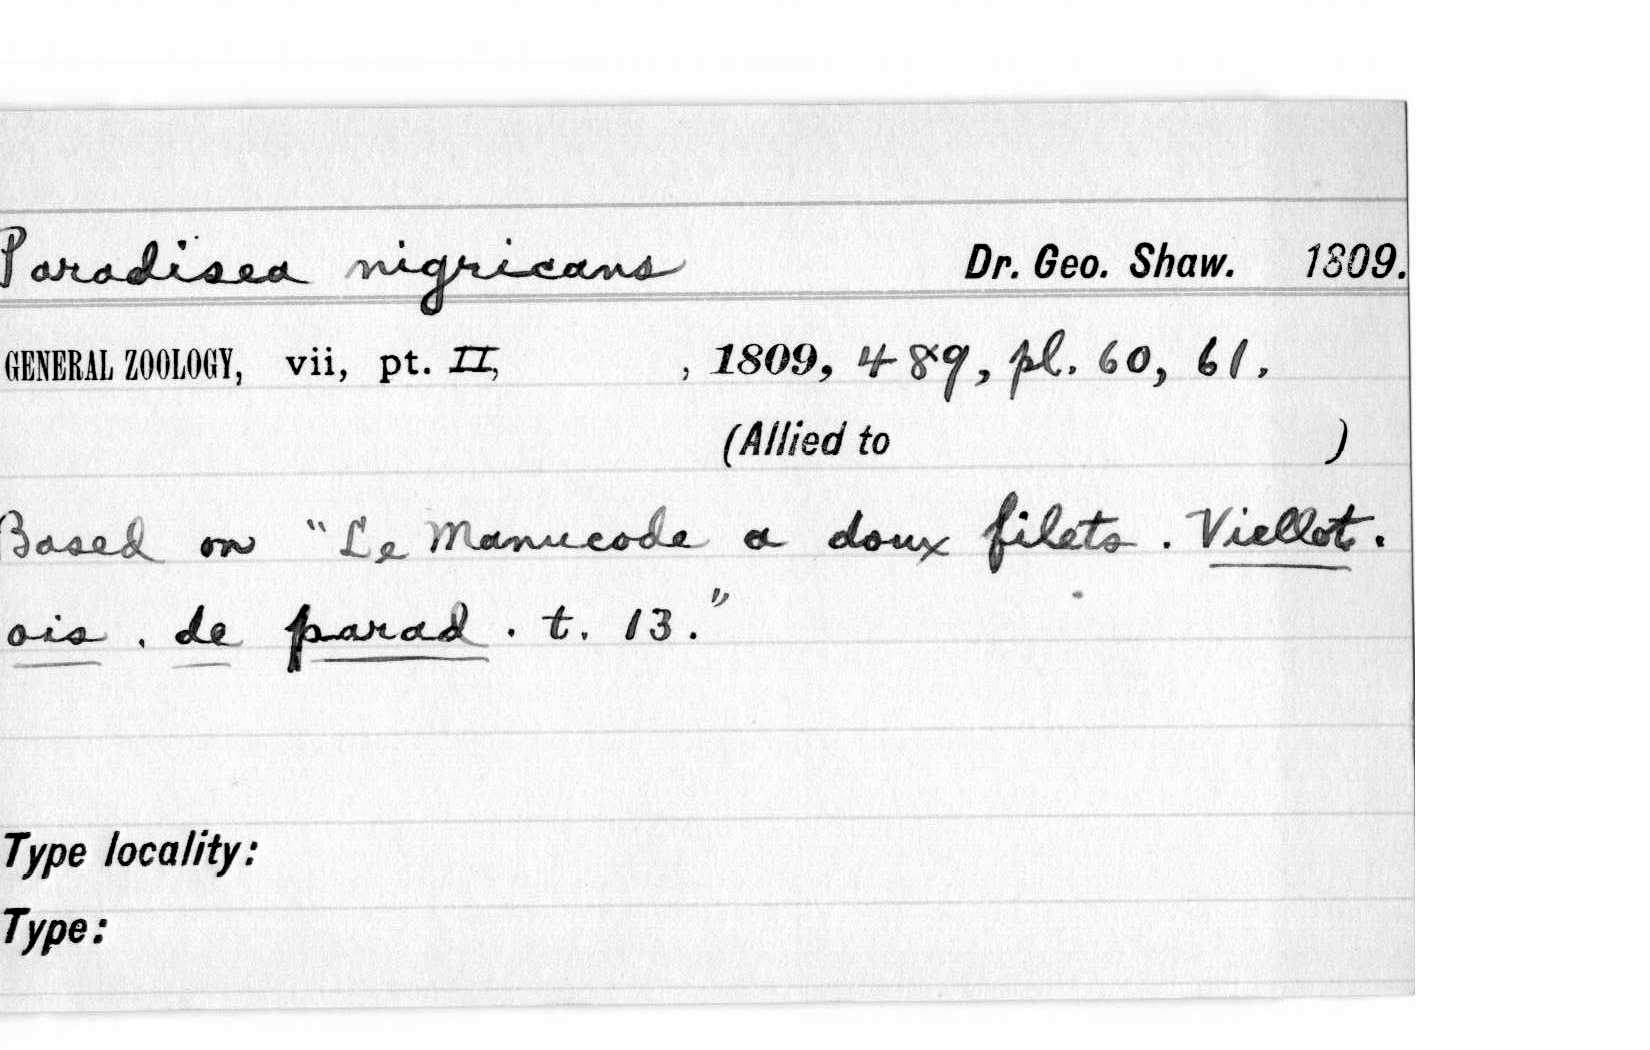 Paradisea nigricans Dr. Geo. Shaw. 1809.
GENERAL ZOOLOGY, vii, pt. II, , 1809, 489, pl. 60, 61.
(Allied to )
Based on "Le Manucode a doux filets. Viellot.
ois. de parad. t. 13."
Type locality:
Type: